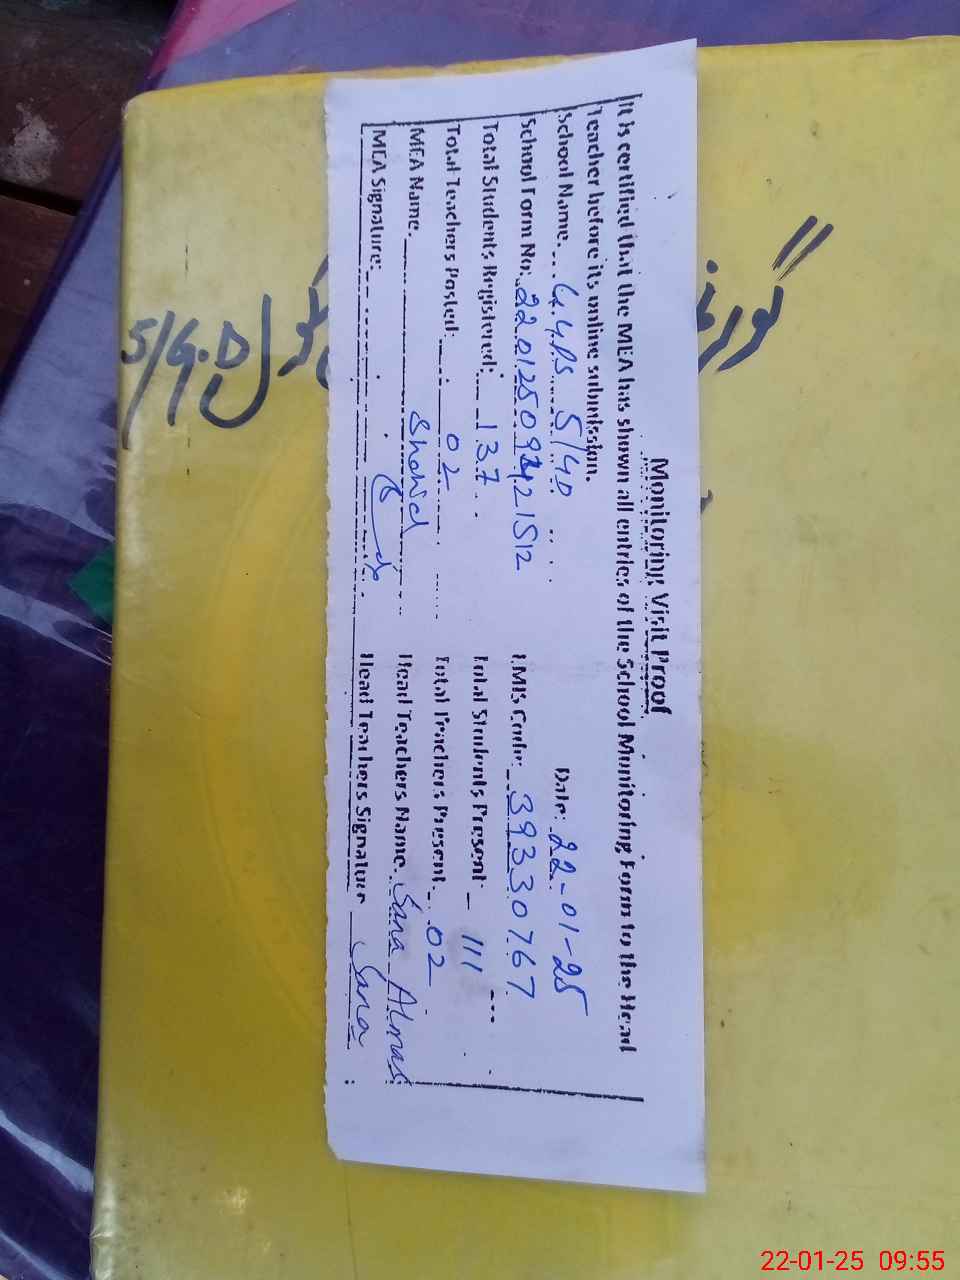 Monitoring Visit Proof
It is certified that the MEA has shown all entries of the School Monitoring Form to the Head
Teacher before its online submission.
School Name. G.G.P.S 5/4D Date: 22-01-25
School Form No: EMIS Code: 39330767
Total Students Registered: 137 Total Students Present: 111
Total Teachers Posted: 02 Total Teachers Present. 02
MEA Name. Shahid Head Teachers Name. Sana Almas
MEA Signature: Head Teachers Signature Sana
5/G.D
22-01-25 09:55